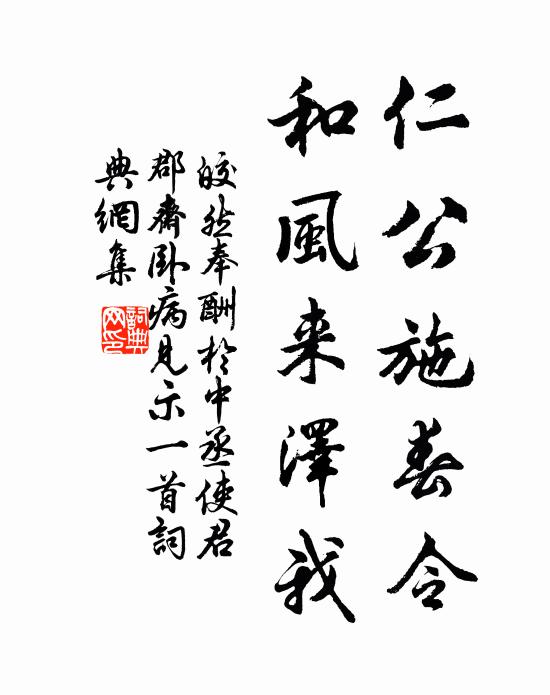 仁公施春令
和風来澤我
皎然奉酬於中丞使君
郡齋卧病見示一首詞
典網集
詞典网印